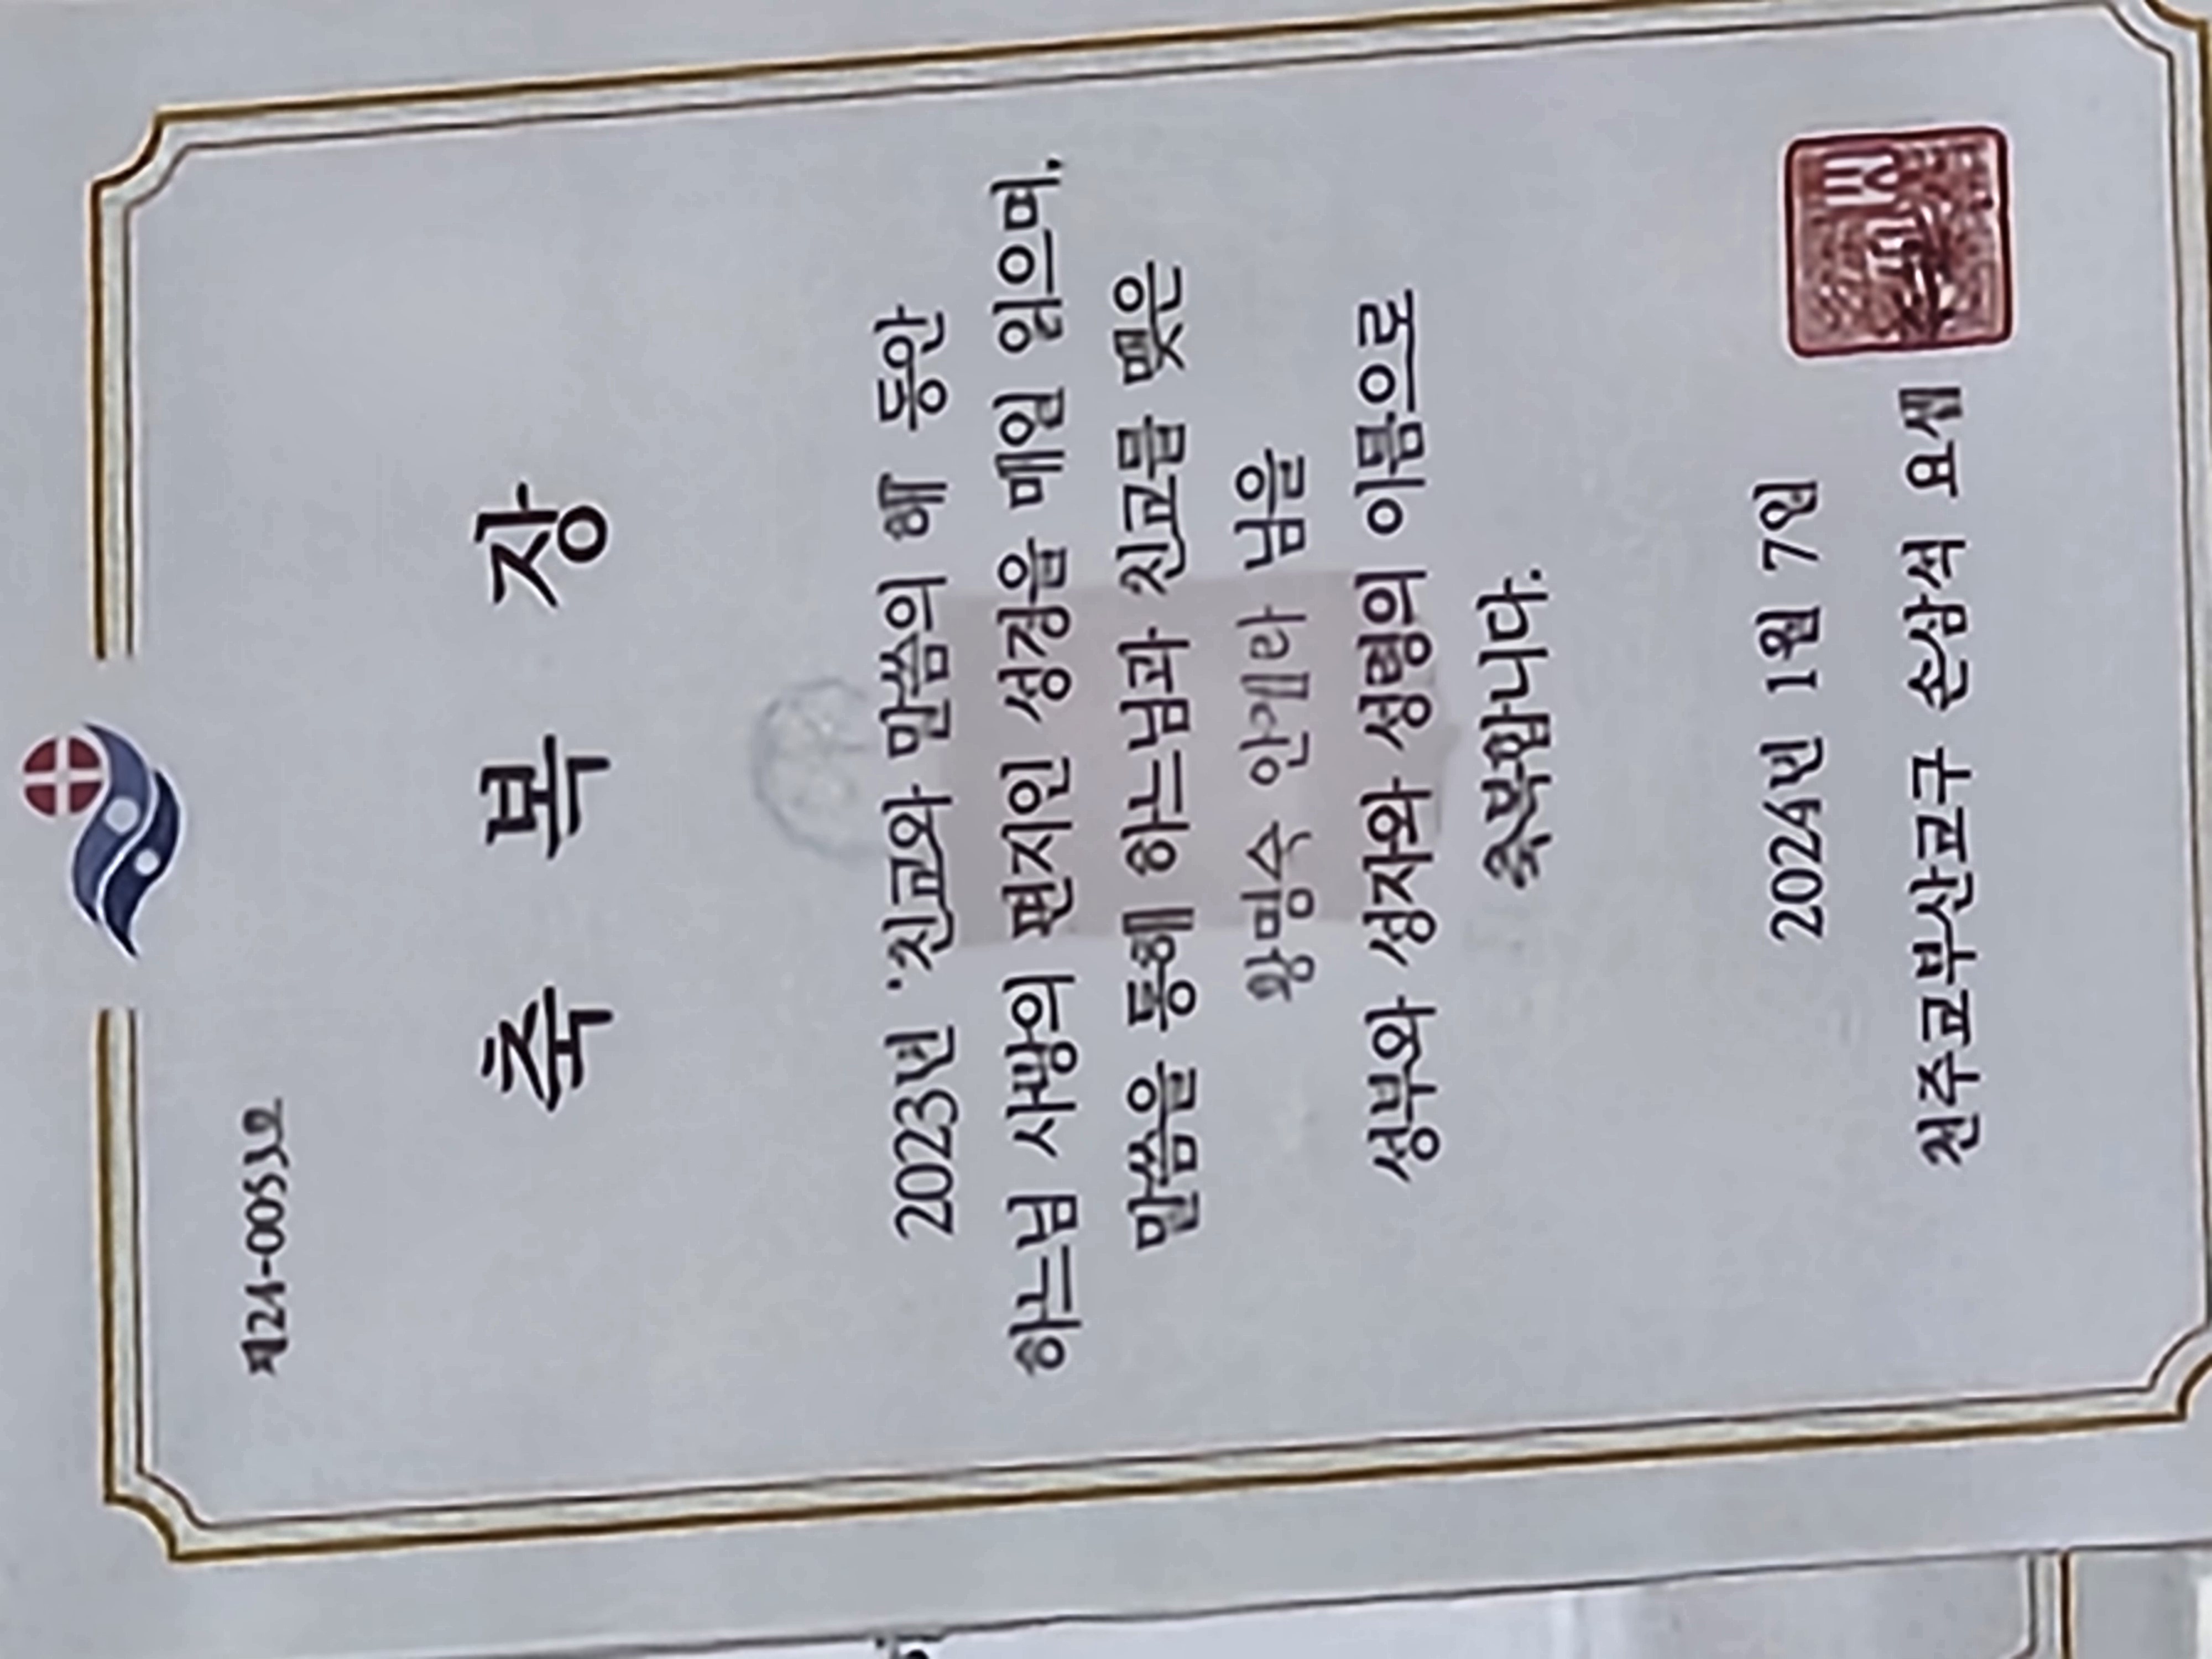 축 복 장
2023년 '친교와 말씀의 해' 동안
하느님 사랑의 편지인 성경을 매일 읽으며,
말씀을 통해 하느님과 친교를 맺은
안젤라 님을
성부와 성자와 성령의 이름으로
축복합니다.
2024년 1월 7일
천주교부산교구 손삼석 요셉